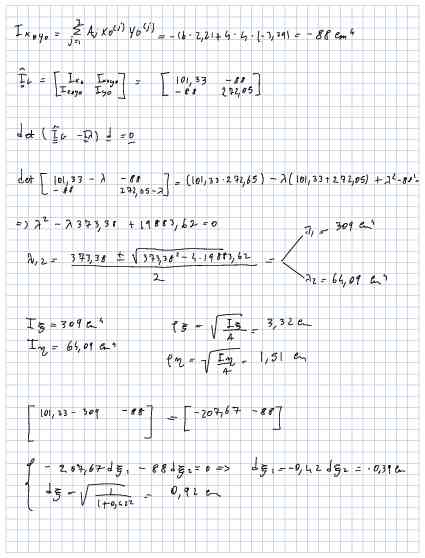 I x₀y₀ = Σ j=1 Aj x₀^(j) y₀^(j) = -16 · 2,21 + 4 · 4 · (-3,29) = -88 cm⁴
Î_G = [ Ix₀ Ix₀y₀ Ix₀y₀ Iy₀ ] = [ 101,33 -88 -88 272,05 ]
det ( Î_G - Iλ ) d = 0
det [ 101,33 - λ -88 -88 272,05 - λ ] = (101,33 · 272,05) - λ (101,33 + 272,05) + λ² - 88²
=> λ² - λ 373,38 + 19883,62 = 0
λ1,2 = 373,38 ± √373,38² - 4 · 19883,62 / 2 = λ1 = 309 cm⁴
λ2 = 64,09 cm⁴
Iξ = 309 cm⁴ ρξ = √Iξ/A = 3,32 cm
Iη = 64,09 cm⁴ ρη = √Iη/A = 1,51 cm
[ 101,33 - 309 -88 ] = [ -207,67 -88 ]
{ - 207,67 dξ₁ - 88 dξ₂ = 0 => dξ₁ = -0,42 dξ₂ = -0,39 cm
dξ = √1/1+0,42² = 0,92 cm